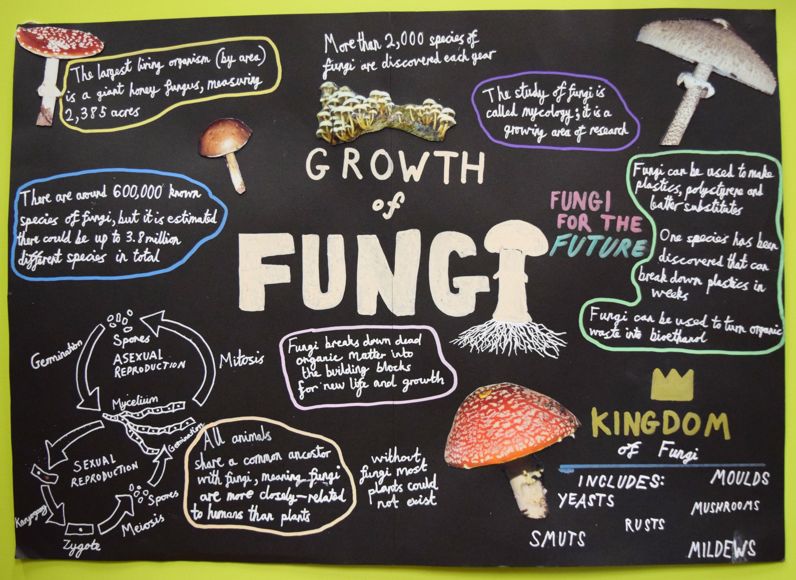 The largest living organism (by area)
is a giant honey fungus, measuring
2,385 acres
More than 2,000 species of
fungi are discovered each year
The study of fungi is
called mycology; it is a
growing area of research
GROWTH
of
FUNGI
There are around 600,000 known
species of fungi, but it is estimated
there could be up to 3.8 million
different species in total
FUNGI
FOR THE
FUTURE
Fungi can be used to make
plastics, polystyrene and
batter substitutes
One species has been
discovered that can
break down plastics in
weeks
Fungi can be used to turn organic
waste into bioethanol
Spores
ASEXUAL
REPRODUCTION
Germination
Mitosis
Mycelium
Germination
SEXUAL
REPRODUCTION
Spores
Meiosis
Zygote
Fungi breaks down dead
organic matter into
the building blocks
for new life and growth
All animals
share a common ancestor
with fungi, meaning fungi
are more closely-related
to humans than plants
without
fungi most
plants could
not exist
KINGDOM
of Fungi
INCLUDES:
YEASTS
SMUTS
RUSTS
MOULDS
MUSHROOMS
MILDEWS